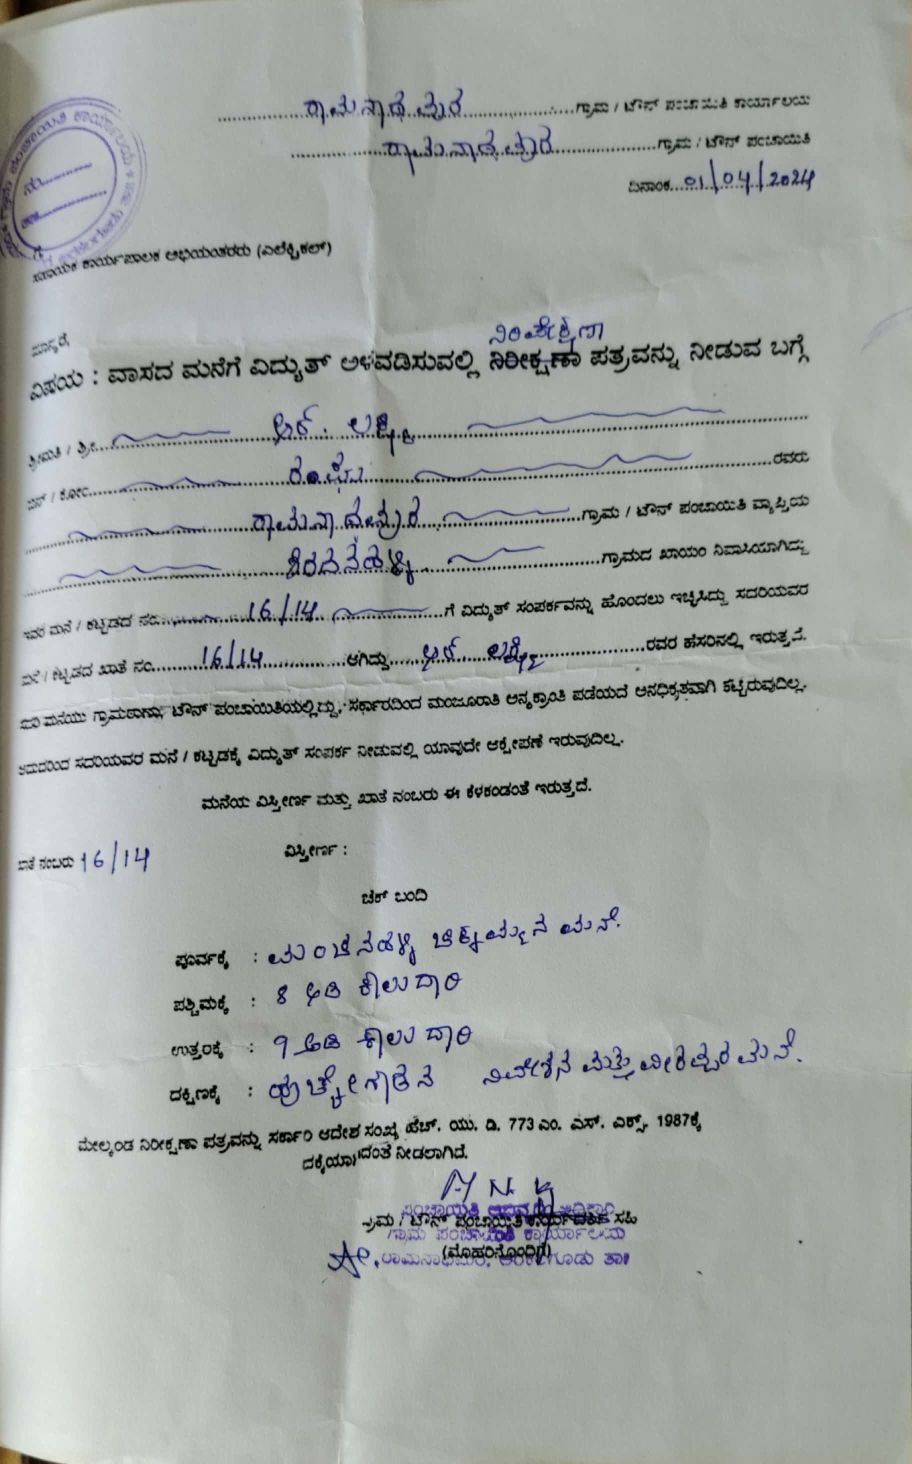 ರಾಮನಾಥಪುರ ಗ್ರಾಮ / ಟೌನ್ ಪಂಚಾಯಿತಿ ಕಾರ್ಯಾಲಯ
ರಾಮನಾಥಪುರ ಗ್ರಾಮ / ಟೌನ್ ಪಂಚಾಯಿತಿ
ದಿನಾಂಕ 01/04/2024
ಗೆ
ಸಹಾಯಕ ಕಾರ್ಯಪಾಲಕ ಅಭಿಯಂತರರು (ಎಲೆಕ್ಟ್ರಿಕಲ್)
ಮಾನ್ಯರೆ,
ವಿಷಯ : ವಾಸದ ಮನೆಗೆ ವಿದ್ಯುತ್ ಅಳವಡಿಸುವಲ್ಲಿ ನಿರೀಕ್ಷಣಾ ಪತ್ರವನ್ನು ನೀಡುವ ಬಗ್ಗೆ
ಶ್ರೀಮತಿ / ಶ್ರೀ ಆರ್. ಲಕ್ಷ್ಮಿ
ಬಿನ್ / ಕೋಂ ರವರು
ರಾಮನಾಥಪುರ ಗ್ರಾಮ / ಟೌನ್ ಪಂಚಾಯಿತಿ ವ್ಯಾಪ್ತಿಯ
ಶಿರದನಹಳ್ಳಿ ಗ್ರಾಮದ ಖಾಯಂ ನಿವಾಸಿಯಾಗಿದ್ದು
ಇವರ ಮನೆ / ಕಟ್ಟಡದ ನಂ. 16/14 ಗೆ ವಿದ್ಯುತ್ ಸಂಪರ್ಕವನ್ನು ಹೊಂದಲು ಇಚ್ಛಿಸಿದ್ದು ಸದರಿಯವರ
ಮನೆ / ಕಟ್ಟಡದ ಖಾತೆ ನಂ. 16/14 ಆಗಿದ್ದು ಆರ್. ಲಕ್ಷ್ಮಿ ರವರ ಹೆಸರಿನಲ್ಲಿ ಇರುತ್ತದೆ.
ಮನೆಯು ಗ್ರಾಮಠಾಣಾ, ಟೌನ್ ಪಂಚಾಯಿತಿಯಲ್ಲಿದ್ದು, ಸರ್ಕಾರದಿಂದ ಮಂಜೂರಾತಿ ಅನ್ಯಕ್ರಾಂತಿ ಪಡೆಯದೆ ಅನಧಿಕೃತವಾಗಿ ಕಟ್ಟಿರುವುದಿಲ್ಲ.
ಆದುದರಿಂದ ಸದರಿಯವರ ಮನೆ / ಕಟ್ಟಡಕ್ಕೆ ವಿದ್ಯುತ್ ಸಂಪರ್ಕ ನೀಡುವಲ್ಲಿ ಯಾವುದೇ ಆಕ್ಷೇಪಣೆ ಇರುವುದಿಲ್ಲ.
ಮನೆಯ ವಿಸ್ತೀರ್ಣ ಮತ್ತು ಖಾತೆ ನಂಬರು ಈ ಕೆಳಕಂಡಂತೆ ಇರುತ್ತದೆ.
ಖಾತೆ ನಂಬರು 16/14 ವಿಸ್ತೀರ್ಣ :
ಚೆಕ್ ಬಂದಿ
ಪೂರ್ವಕ್ಕೆ : ಮಂಚನಹಳ್ಳಿ ಚಿಕ್ಕಮ್ಮನ ಮನೆ.
ಪಶ್ಚಿಮಕ್ಕೆ : 8 ಅಡಿ ಕಾಲುದಾರಿ
ಉತ್ತರಕ್ಕೆ : 9 ಅಡಿ ಕಾಲುದಾರಿ
ದಕ್ಷಿಣಕ್ಕೆ : ಪುಚ್ಚೇಗೌಡನ ನಿವೇಶನ ಮತ್ತು ವೀರಪ್ಪರ ಮನೆ.
ಮೇಲ್ಕಂಡ ನಿರೀಕ್ಷಣಾ ಪತ್ರವನ್ನು ಸರ್ಕಾರಿ ಆದೇಶ ಸಂಖ್ಯೆ ಹೆಚ್. ಯು. ಡಿ. 773 ಎಂ. ಎಸ್. ಎಕ್ಸ್. 1987ಕ್ಕೆ
ನೀಡಲಾಗಿದೆ.
ಗ್ರಾಮ / ಟೌನ್ ಪಂಚಾಯಿತಿ ಕಾರ್ಯದರ್ಶಿ ಸಹಿ
ಗ್ರಾಮ ಪಂಚಾಯಿತಿ ಕಾರ್ಯಾಲಯ
(ಮೊಹರಿನೊಂದಿಗೆ)
ರಾಮನಾಥಪುರ, ಅರಕಲಗೂಡು ತಾ॥